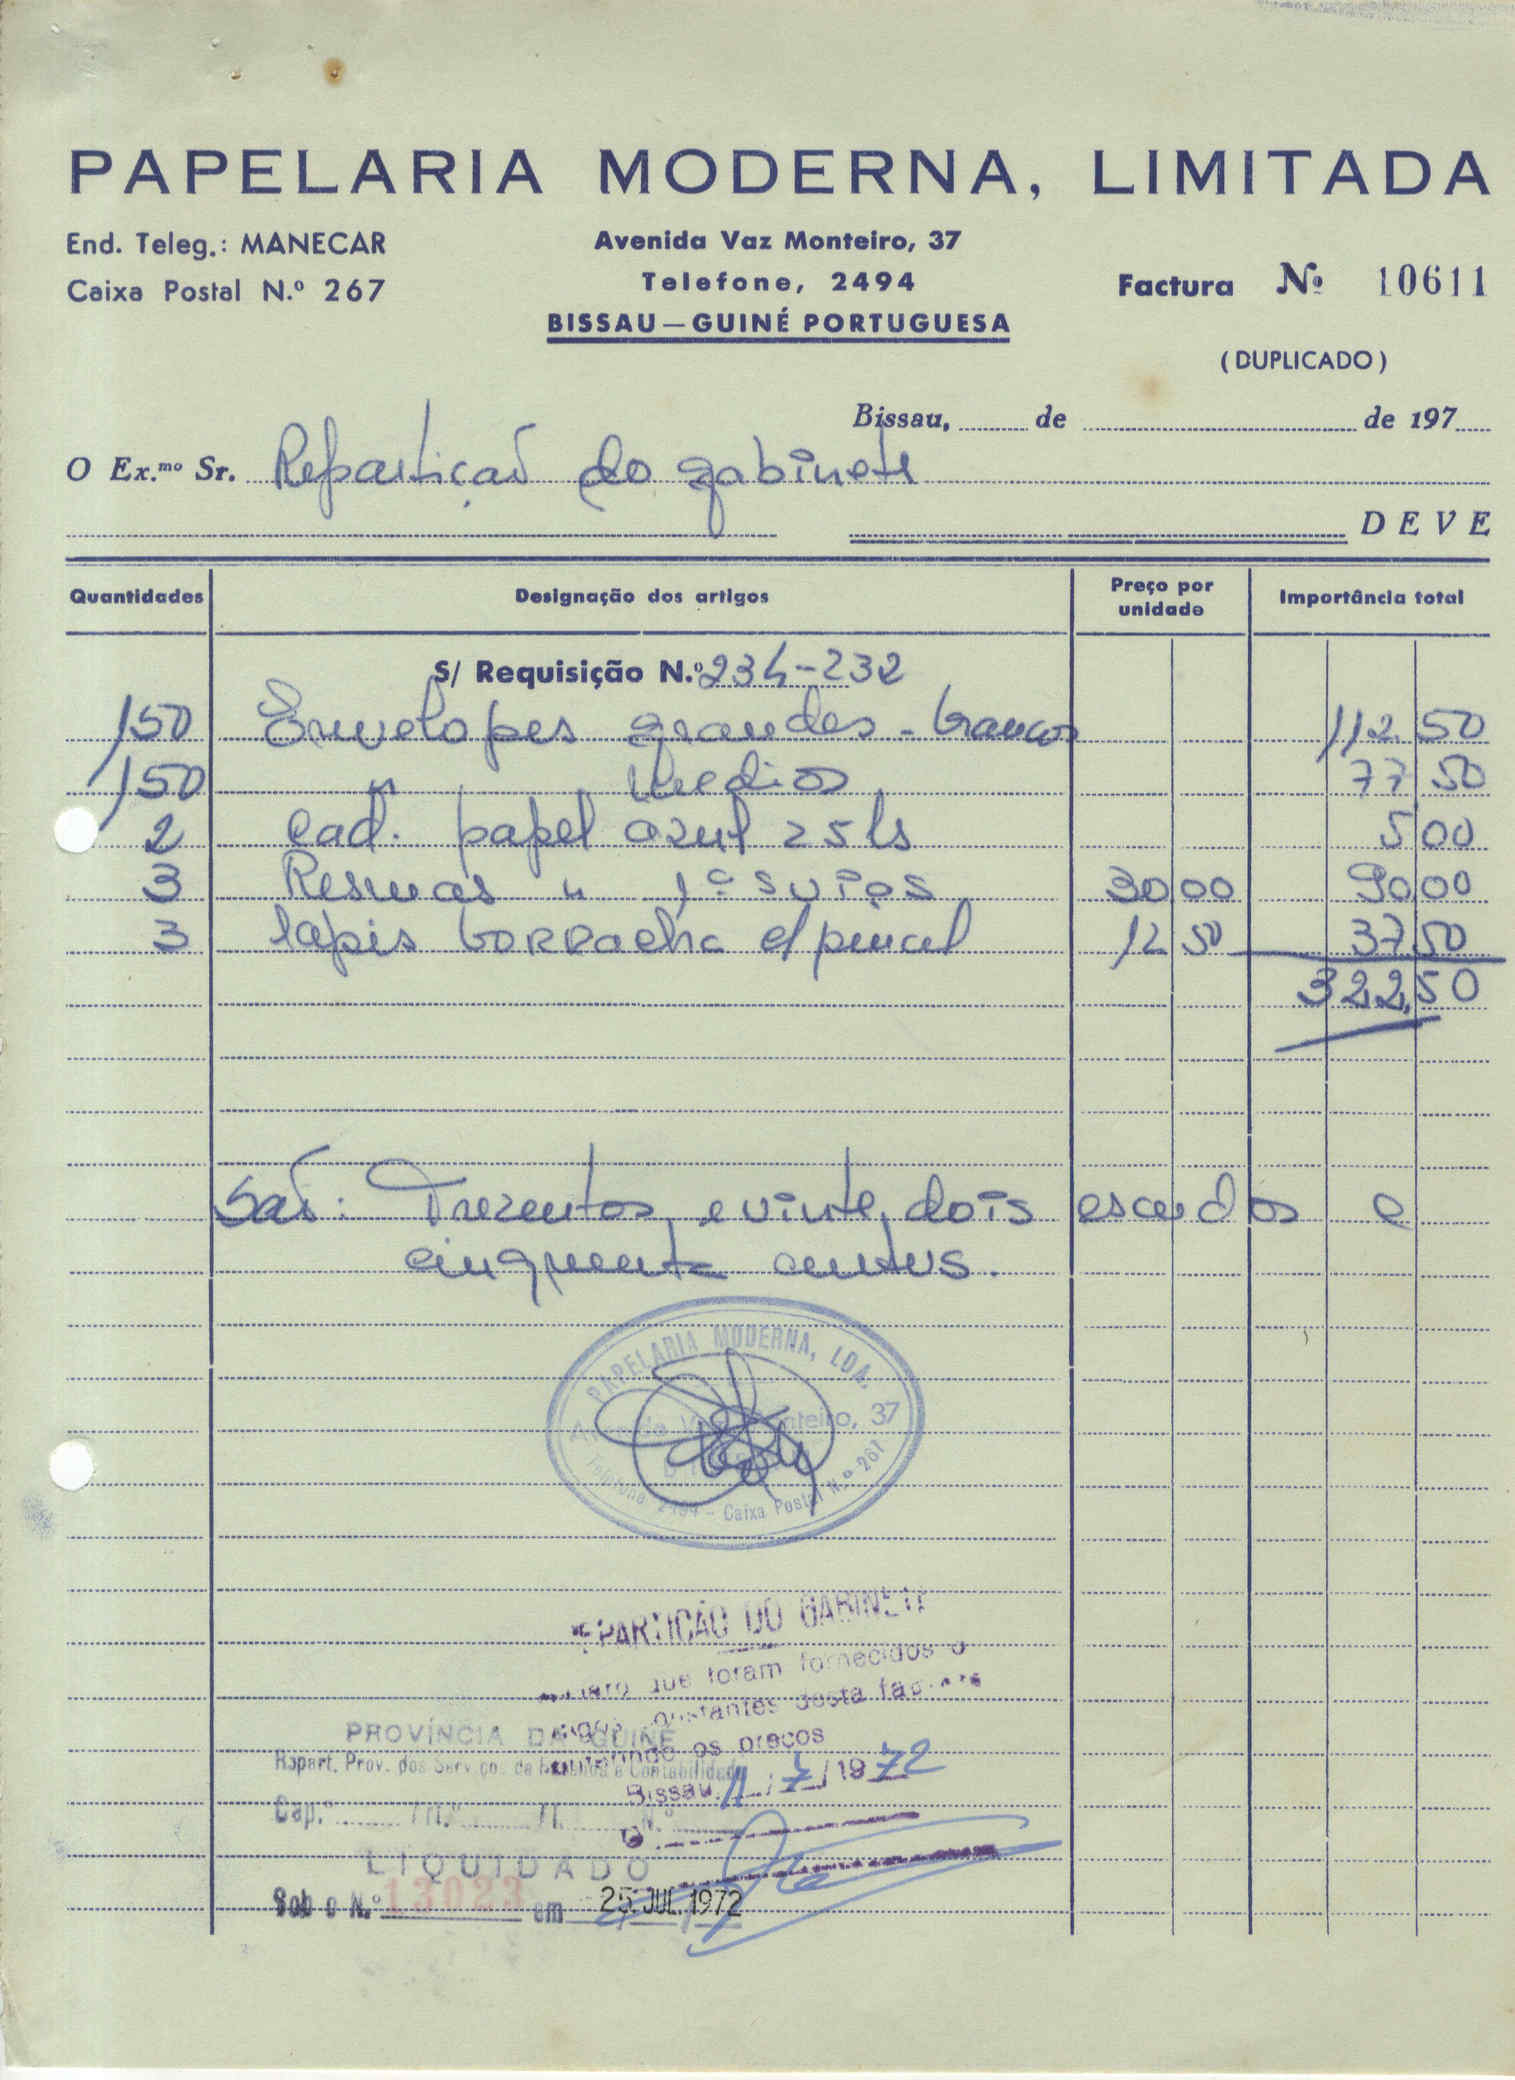 PAPELARIA MODERNA, LIMITADA
End. Teleg.: MANECAR
Caixa Postal N.º 267
Avenida Vaz Monteiro, 37
Telefone, 2494
BISSAU—GUINÉ PORTUGUESA
Factura Nº 10611
(DUPLICADO)
Bissau, de de 197
O Ex.mo Sr. Repartição do gabinete
DEVE
Quantidades Designação dos artigos Preço por unidade Importância total
S/ Requisição N.º 234-232
150 Envelopes grandes - brancos 112 50
150 " Medios 77 50
2 Cad. papel azul 25 ls 5 00
3 Resmas " 30 00 90 00
3 lapis borracha c/ pincel 12 50 37 50
322,50
São: Trezentos e vinte dois escudos e
cinquenta centvs.
PAPELARIA MODERNA, LDA.
Avenida Vaz Monteiro, 37
Telefone 2494 - Caixa Postal N.º 267
EPARTIÇÃO DO GABINETE
que foram fornecidos o
constantes desta
os preços
Bissau, 11 / 7 / 1972
O
PROVÍNCIA DA GUINÉ
Repart. Prov. dos Serviços de Fazenda e Contabilidade
Cap.º N.º
LIQUIDADO
Sob o N.º 13023 em 25 JUL. 1972